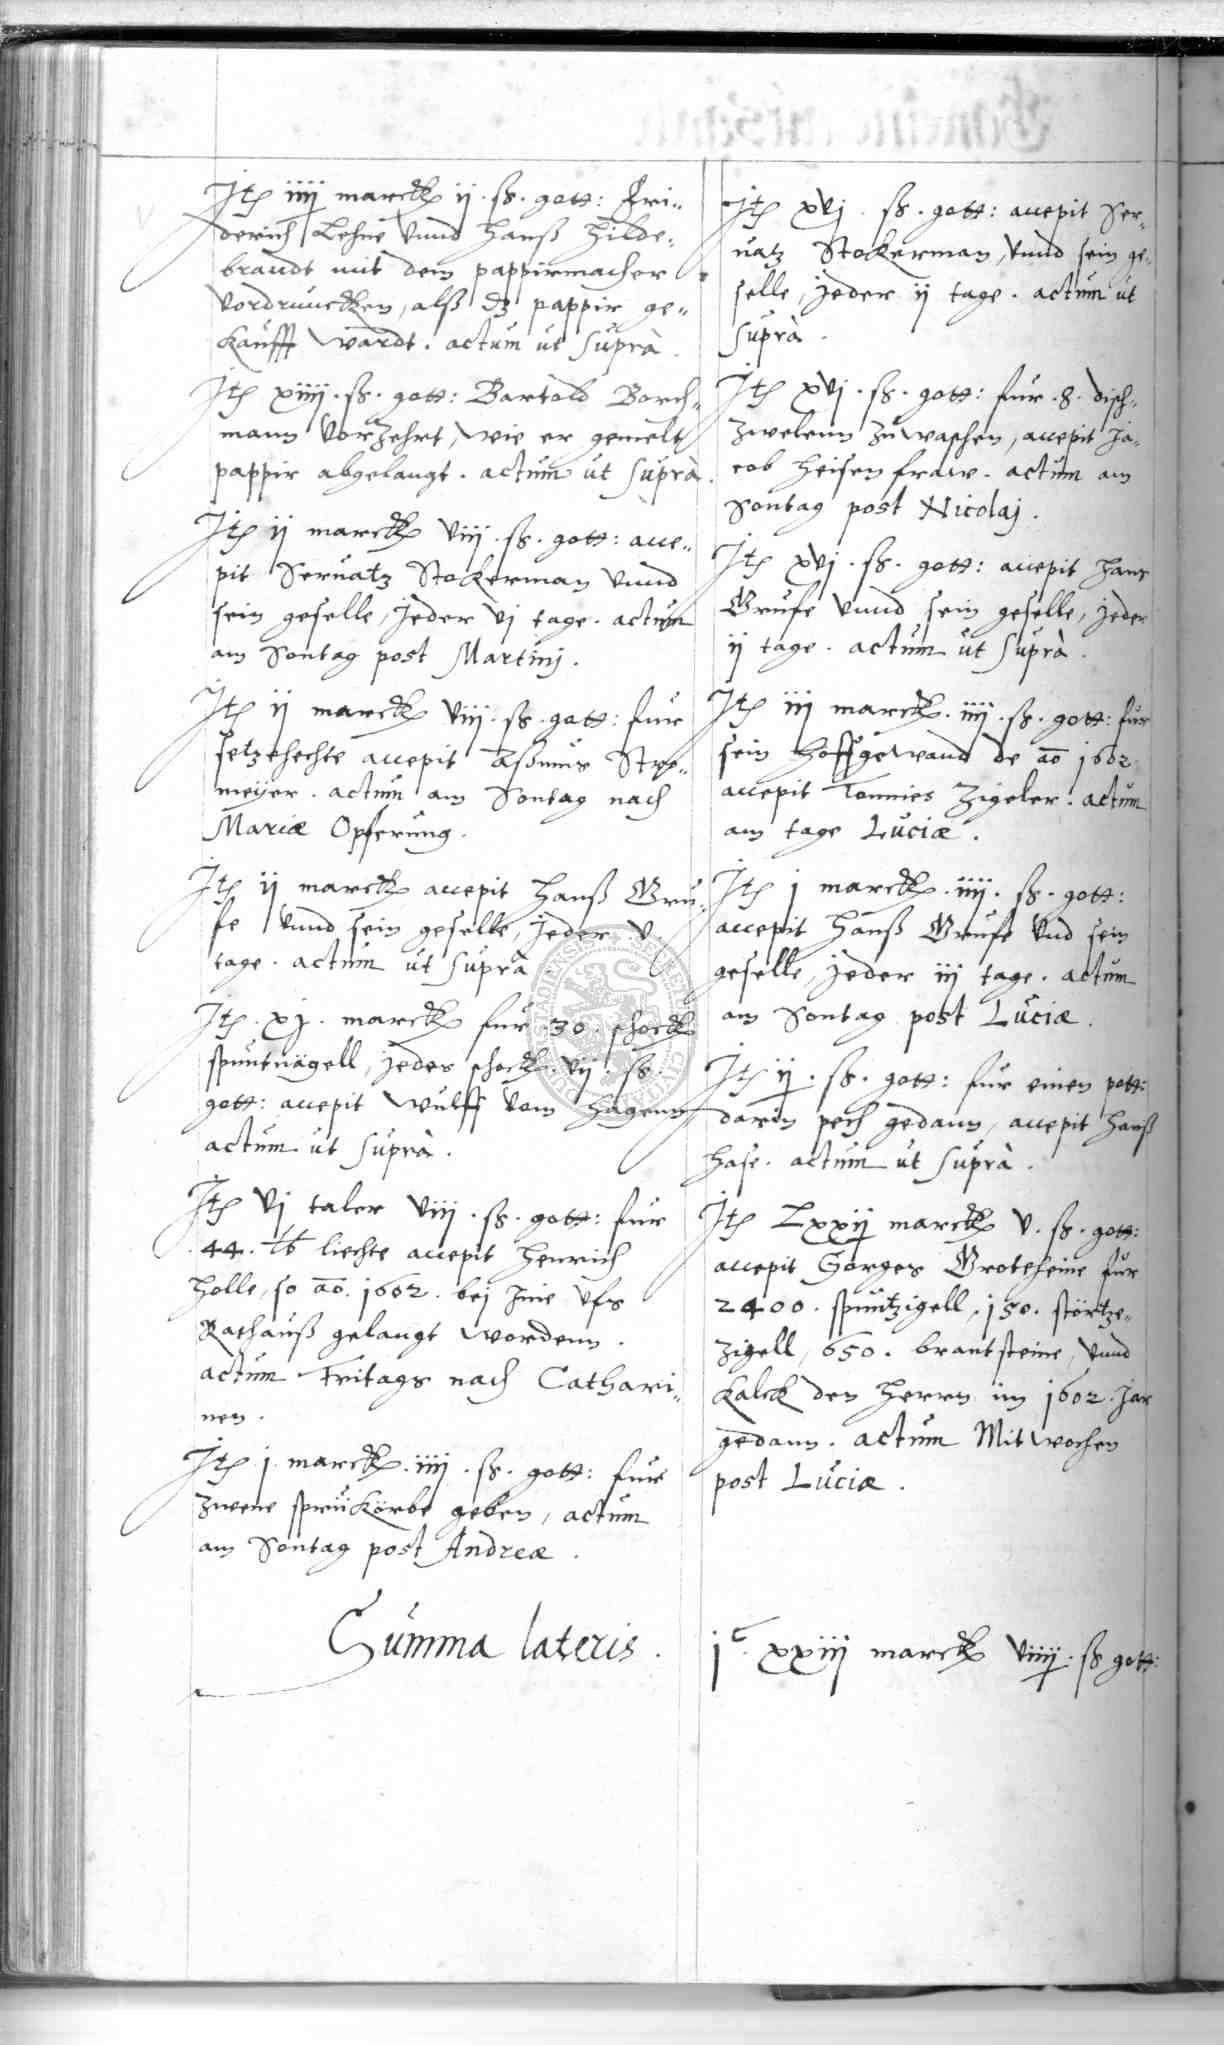 Jtem iiij marck ij. ß. gott: Fri-
derich Lehne vnnd Hanß Hilde-
brandt mit dem pappirmacher
vordruncken, alß dz pappir ge-
kaufft wardt. actum ut suprà.
Jtem xiiij. ß. gott: Bartold Borch-
mann vorzehrt, wie er gemelt
pappir abgelangt. actum ut suprà.
Jtem ij marck viij. ß. gott: acce-
pit Seruatz Stokerman vnnd
sein geselle, jeder vj tage. actum
am Sontag post Martinj.
Jtem ij marck viij. ß. gott: fur
setzehechte accepit Aßmus
meÿer. actum am Sontag nach
Mariæ Opferung.
Jtem ij marck accepit Hanß Gru-
fe vnnd sein geselle, jeder v.
tage. actum ut suprà.
Jtem. xj. marck fur. 30. schock
spuntnägell, jedes schock. vij. ß.
gott: accepit Wulff vom Hagenn
actum ut suprà.
Jtem vj taler viij. ß. gott: fur
.44. lb liechte accepit Henrich
Holle, so ao. 1602. bej jme vfs
Rathauß gelangt wordenn.
actum Fritags nach Cathari-
nen.
Jtem j marck. iiij. ß. gott: fur
zwene sprükörbe geben, actum
am Sontag post Andreæ.
Jtem xvj. ß. gott: accepit Ser-
uatz Stokerman, vnnd sein ge-
selle, jeder ij tage. actum ut
suprà.
Jtem xvj. ß. gott: fur. 8. disch-
zwelenn zu waschen, accepit Ja-
cob Heisen fraw. actum am
Sontag post Nicolaj.
Jtem xvj. ß. gott: accepit Hans
Grufe vnnd sein geselle, jeder
ij tage. actum ut suprà.
Jtem iij marck. iiij. ß. gott: fur
sein hoffgewand de ao 1602.
accepit Tonnies Zigeler. actum
am tage Luciæ.
Jtem j marck. iiij. ß. gott:
accepit Hanß Grufe vnd sein
geselle, jeder iij tage. actum
am Sontag post Luciæ.
Jtem ij. ß. gott: fur einen pott:
darin pech gedann, accepit Hanß
Hase. actum ut suprà.
Jtem Lxxij marck v. ß. gott:
accepit Gorges Groteheine fur
2400. spuntzigell, 150. störtze-
zigell, 650. brantsteine, vnnd
Kalck den Herrn im 1602. jar
gedann. actum Mitwochen
post Luciæ.
Summa lateris. jc. xxiij marck viiij. ß gott: